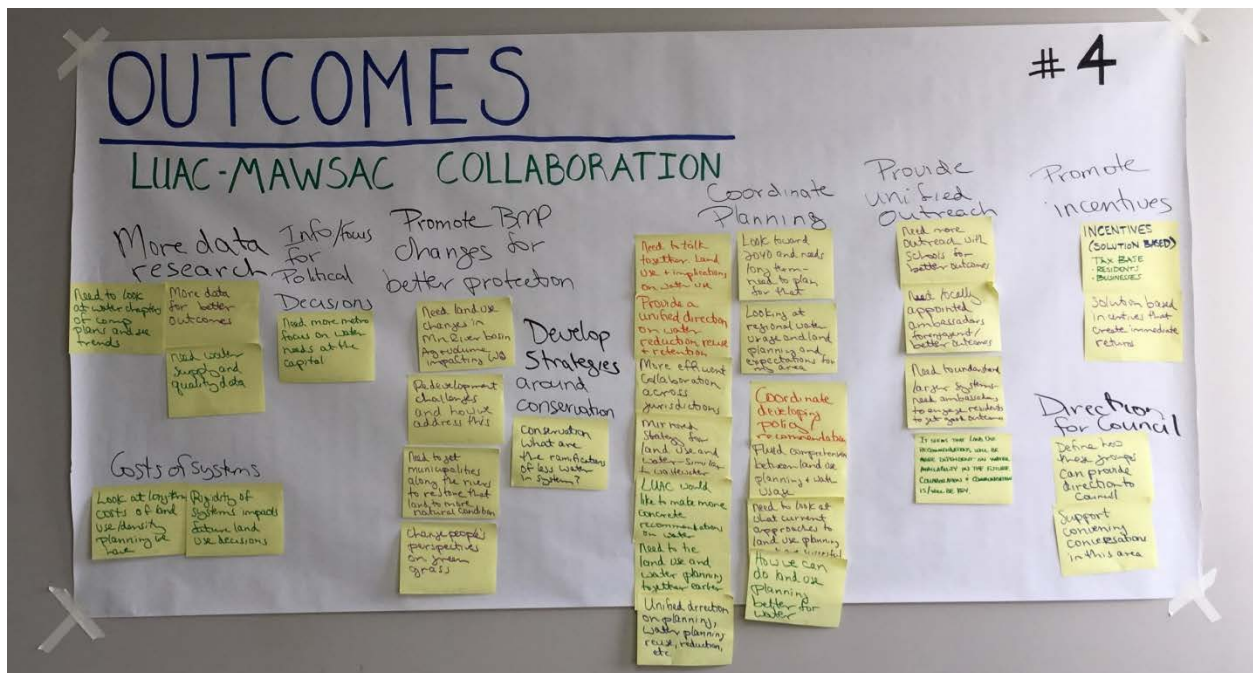 OUTCOMES
# 4
LUAC-MAWSAC COLLABORATION
More data
research
Need to look
at water chapters
of comp
plans and see
trends
More data
for better
outcomes
Need water
supply and
quality data
Costs of Systems
Look at long term
costs of land
use/density
planning we
have
Rigidity of
systems impacts
future land
use decisions
Info/focus
for
Political
Decisions
Need more metro
focus on water
needs at the
capital
Promote BMP
changes for
better protection
Need land use
changes in
Mn River basin
Ag + volume
impacting WQ
Redevelopment
challenges
and how we
address this
Need to get
municipalities
along the rivers
to restore that
land to more
natural condition
Change people's
perspectives
on green
grass
Develop
Strategies
around
conservation
Conservation
what are
the ramifications
of less water
in system?
Coordinate
Planning
Need to talk
together. Land
use + implications
on water use
Provide a
unified direction
on water
reduction reuse
+ retention
More efficient
Collaboration
across
jurisdictions
strategy for
land use and
water - similar
to wastewater
LUAC would
like to make more
concrete
recommendations
on water
Need to tie
land use and
water planning
together earlier
Unified direction
on planning,
water planning
reuse, reduction,
etc
Look toward
2040 and needs
long term-
need to plan
for that
Looking at
regional water
usage and land
planning and
expectations for
my area
Coordinate
developing
policy
recommendations
Fluid comprehension
between land use
planning + water
usage
Need to look at
what current
approaches to
land use planning
How we can
do land use
planning
better for
water
Provide
unified
outreach
Need more
outreach with
schools for
better outcomes
Need locally
appointed
ambassadors
for engagement/
better outcomes
Need to understand
larger systems-
need ambassadors
to engage residents
to get good outcomes
It seems that land use
recommendations will be
more dependent on water
availability in the future
collaboration + communication
is/will be key.
Promote
incentives
INCENTIVES
(SOLUTION BASED)
TAX BASE
• RESIDENTS
• BUSINESSES
Solution based
incentives that
create immediate
returns
Direction
for Council
Define how
these groups
can provide
direction to
Council
Support
convening
conversation
in this area